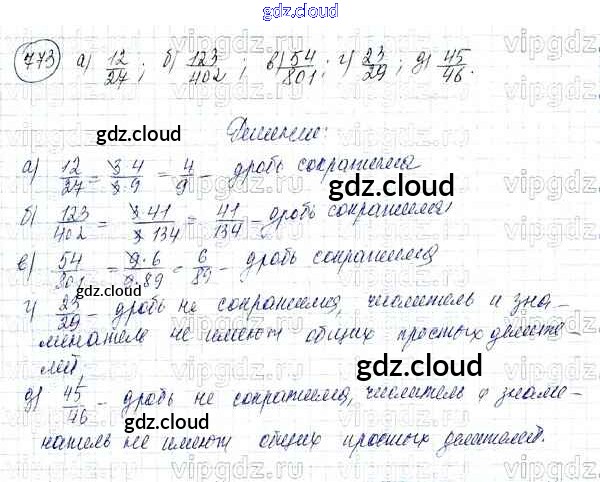 gdz.cloud
773 а) 12/27; б) 123/402; в) 54/801; г) 23/29; д) 45/46.
gdz.cloud
Решение:
а) 12/27 = 3·4/3·9 = 4/9 – дробь сократима
gdz.cloud
б) 123/402 = 3·41/3·134 = 41/134 – дробь сократима
в) 54/801 = 9·6/9·89 = 6/89 – дробь сократима
gdz.cloud
г) 23/29 – дробь не сократима, числитель и зна-
менатель не имеют общих простых делите-
лей,
gdz.cloud
д) 45/46 – дробь не сократима, числитель и знаме-
натель не имеют общих простых делителей.
gdz.cloud
vipgdz.ru